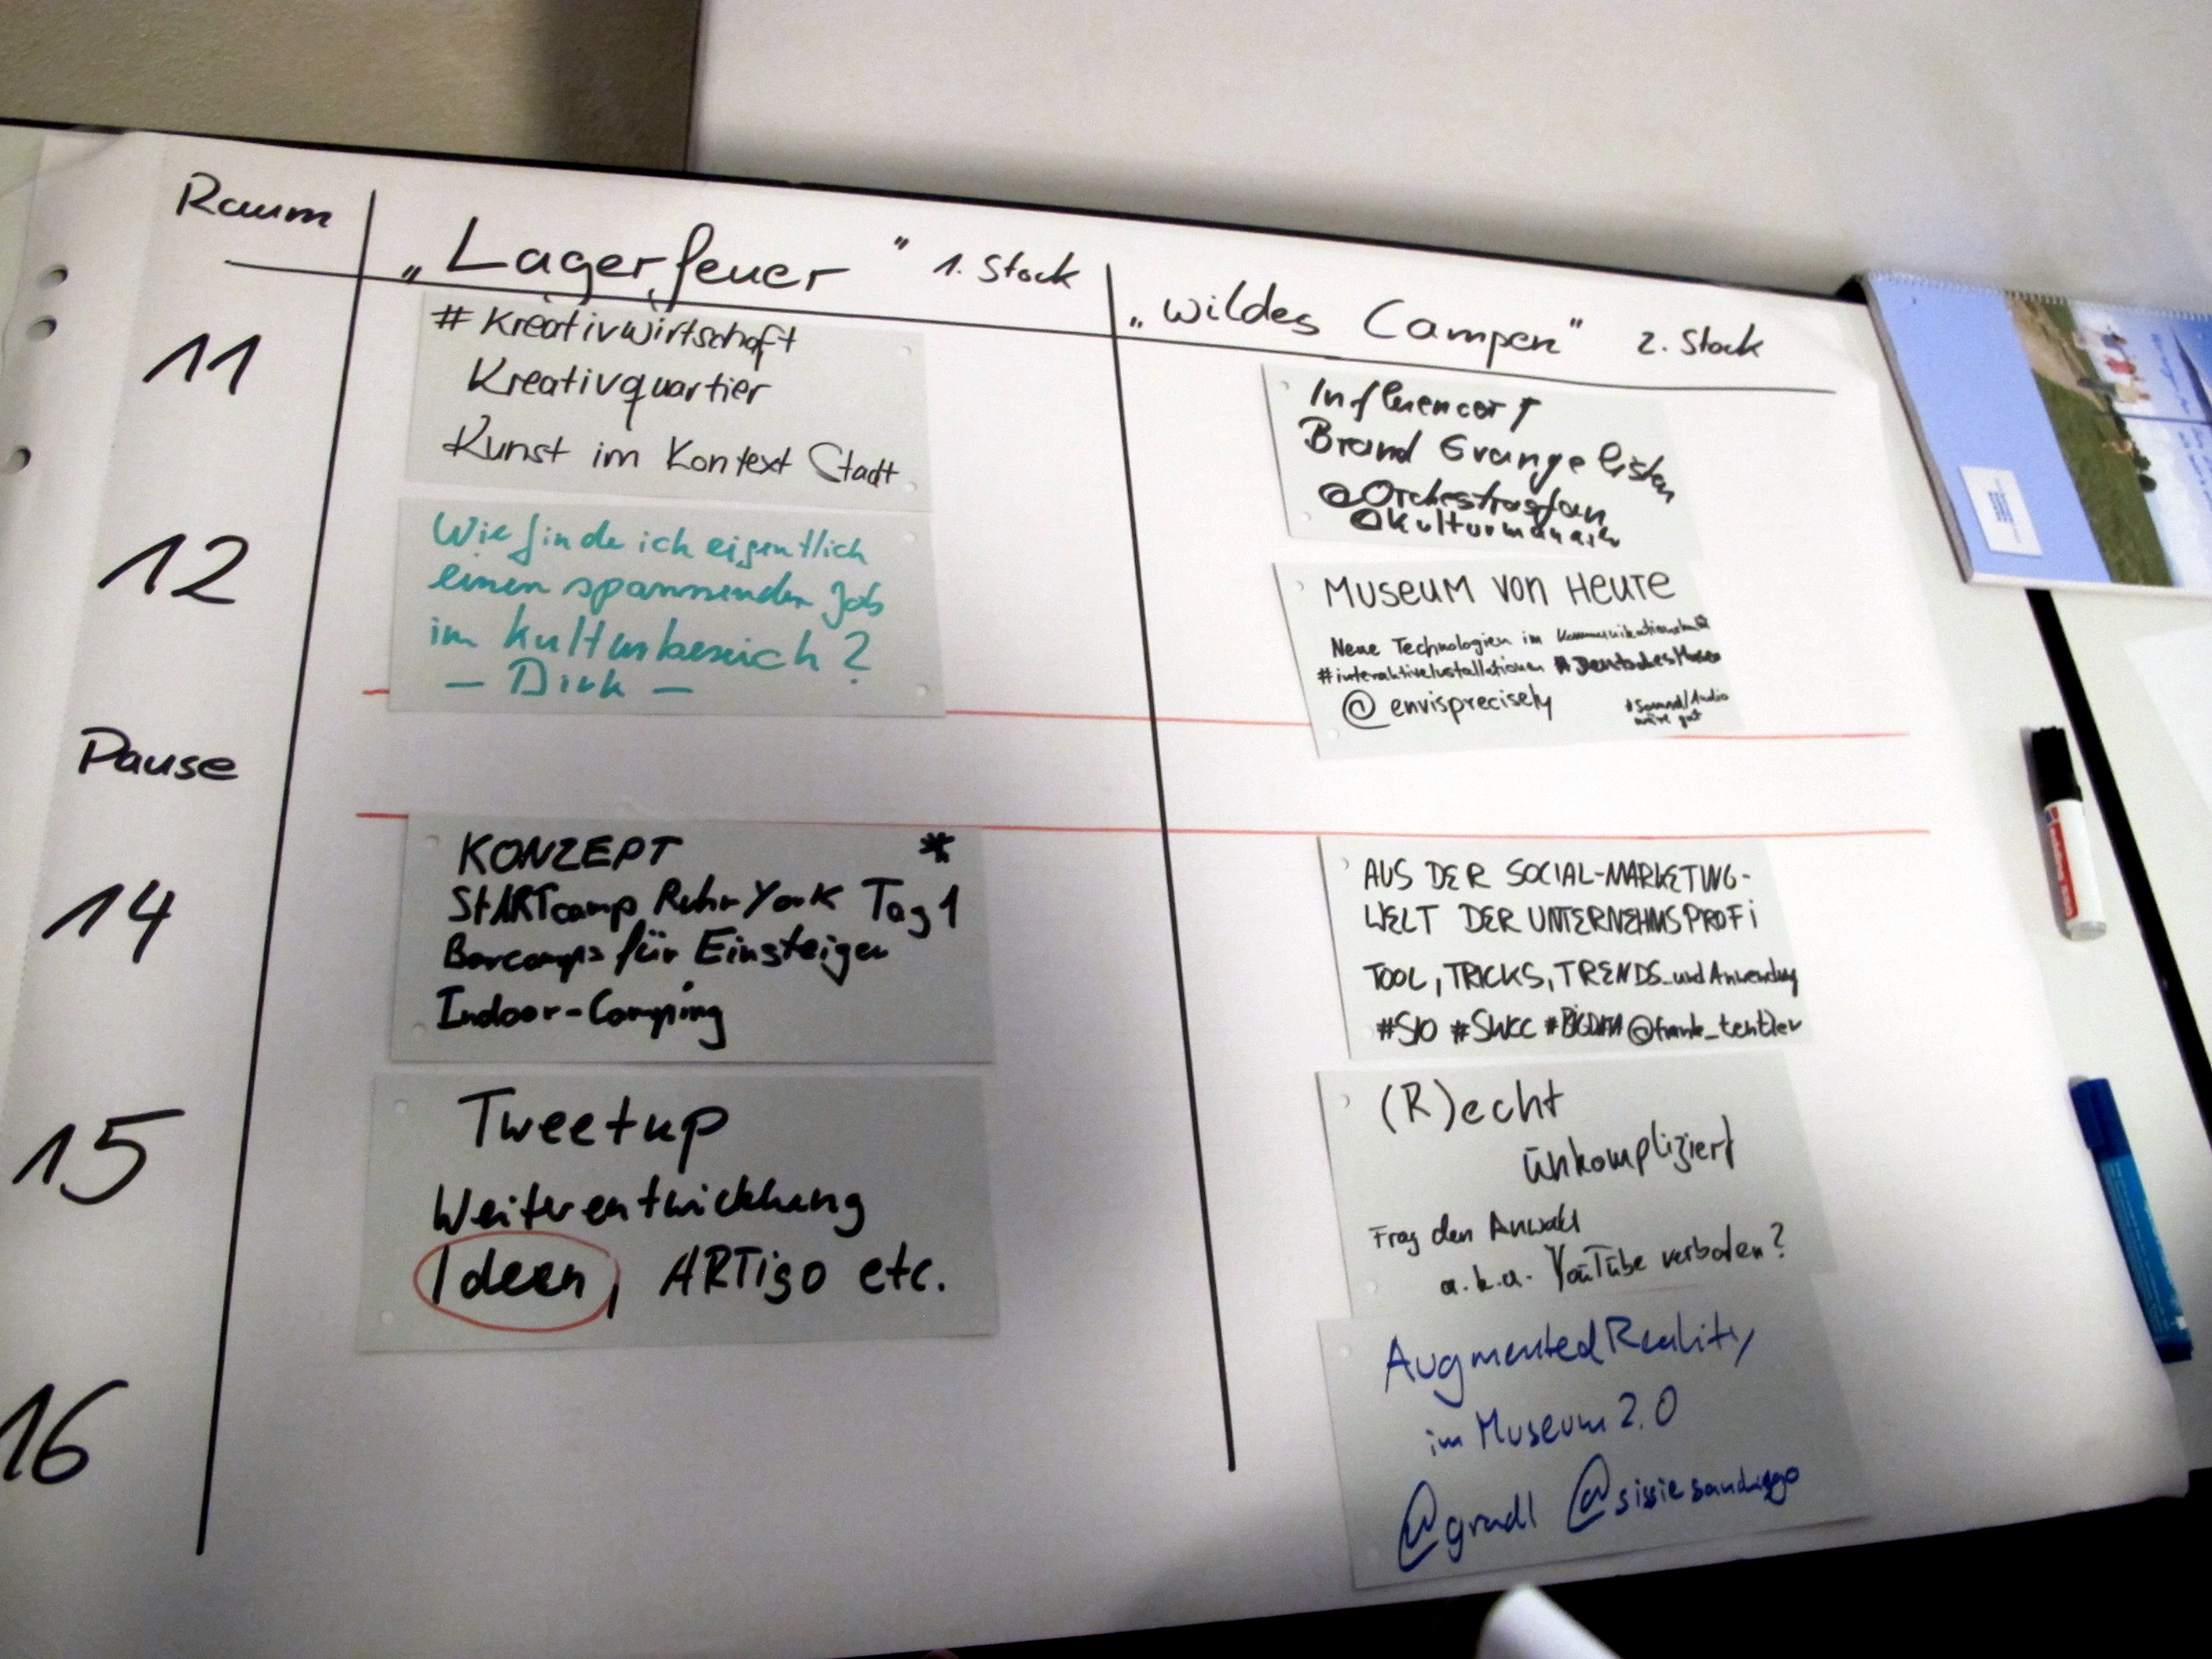 Raum
„Lagerfeuer" 1. Stock
„wildes Campen" 2. Stock
11
# Kreativwirtschaft
Kreativquartier
Kunst im Kontext Stadt
Influencer
Brand Evangelisten
@Orchestrasfan
12
Wie finde ich eigentlich
einen spannenden Job
im Kulturbereich?
– Dirk –
MUSEUM VON HEUTE
Neue Technologien im
#interaktiveInstallationen #DeutschesMuseum
@envisprecisely
#Sound/Audio
wäre gut
Pause
14
KONZEPT *
StARTcamp RuhrYork Tag 1
Barcamps für Einsteiger
Indoor-Camping
AUS DER SOCIAL-MARKETING-
WELT DER UNTERNEHMSPROFI
TOOL, TRICKS, TRENDS und Anwendung
#SIO #SWCC #BIGDATA @frank_tentler
15
Tweetup
Weiterentwicklung
Ideen, ARTigo etc.
(R)echt
unkompliziert
Frag den Anwalt
a.k.a. YouTube verboten?
16
Augmented Reality
im Museum 2.0
@gradl @sissiesandiego